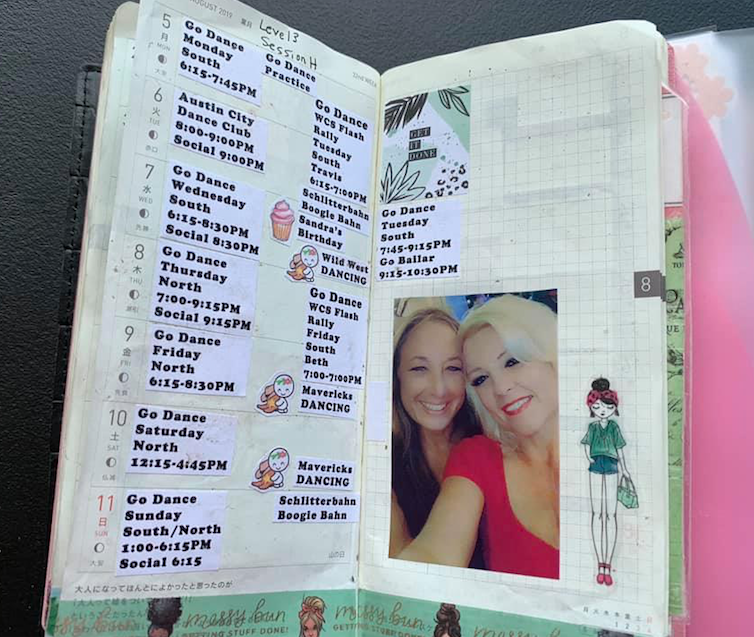 AUGUST 2019 葉月
Level 3
Session H
32nd WEEK
5
月
MON
大安
Go Dance
Monday
South
6:15-7:45PM
Go Dance
Practice
6
火
TUE
赤口
Austin City
Dance Club
8:00-9:00PM
Social 9:00PM
Go Dance
WCS Flash
Rally
Tuesday
South
Travis
6:15-7:00PM
7
水
WED
先勝
Go Dance
Wednesday
South
6:15-8:30PM
Social 8:30PM
Schlitterbahn
Boogie Bahn
Sandra's
Birthday
8
木
THU
Go Dance
Thursday
North
7:00-9:15PM
Social 9:15PM
Wild West
DANCING
9
金
FRI
先負
Go Dance
Friday
North
6:15-8:30PM
Go Dance
WCS Flash
Rally
Friday
South
Beth
7:00-7:00PM
Mavericks
DANCING
10
土
SAT
仏滅
Go Dance
Saturday
North
12:15-4:45PM
Mavericks
DANCING
11
日
SUN
大安
Go Dance
Sunday
South/North
1:00-6:15PM
Social 6:15
Schlitterbahn
Boogie Bahn
山の日
大人になってほんとによかったと思ったのが
messy bun
GETTING STUFF DONE!
GET
IT
DONE
Go Dance
Tuesday
South
7:45-9:15PM
Go Bailar
9:15-10:30PM
8
月 火 水 木 金 土 日
1 2 3 4
messy bun
GETTING STUFF DONE!